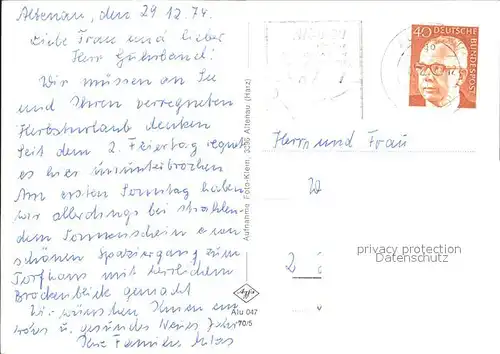 Altenau, den 29.12.74.
Liebe Frau und lieber
Herr
Wir müssen an Sie
und Ihren verregneten
Herbsturlaub denken
Seit dem 2. Feiertag regnet
es hier ununterbrochen
Am ersten Sonntag haben
wir allerdings bei strahlen-
dem Sonnenschein einen
schönen Spaziergang zum
Torfhaus mit herrlichem
Brockenblick gemacht
Wir wünschen Ihnen ein
frohes u. gesundes Neues Jahr
Ihre Familie
Aufnahme Foto-Klein, 3396 Altenau (Harz)
Alu 047
70/5
40 DEUTSCHE
BUNDESPOST
Herrn und Frau
privacy protection
Datenschutz